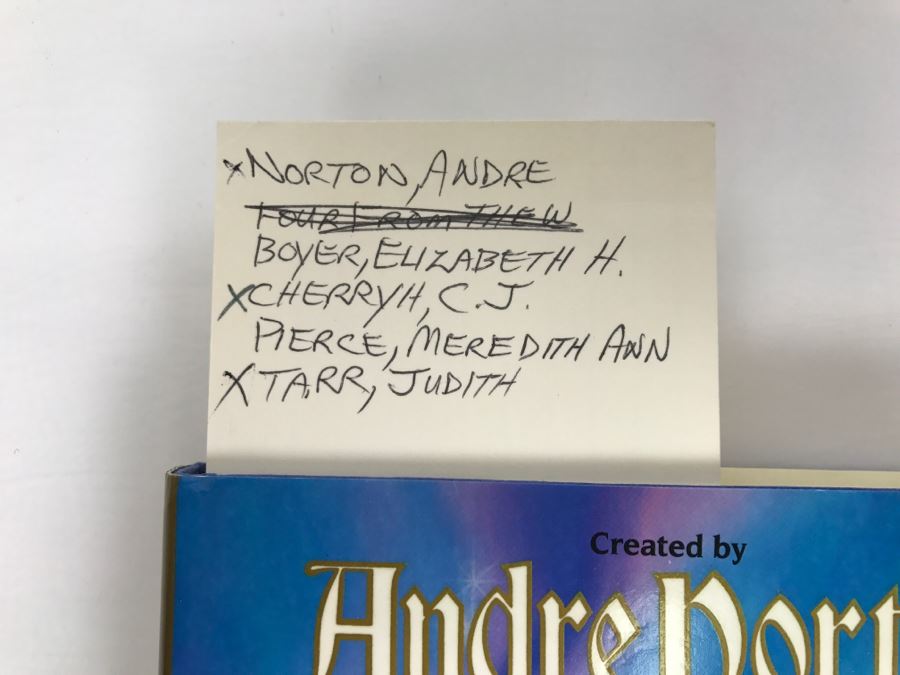 x NORTON, ANDRE
FOUR FROM THE W
BOYER, ELIZABETH H.
X CHERRYH, C.J.
PIERCE, MEREDITH ANN
X TARR, JUDITH
Created by
Andre Nort